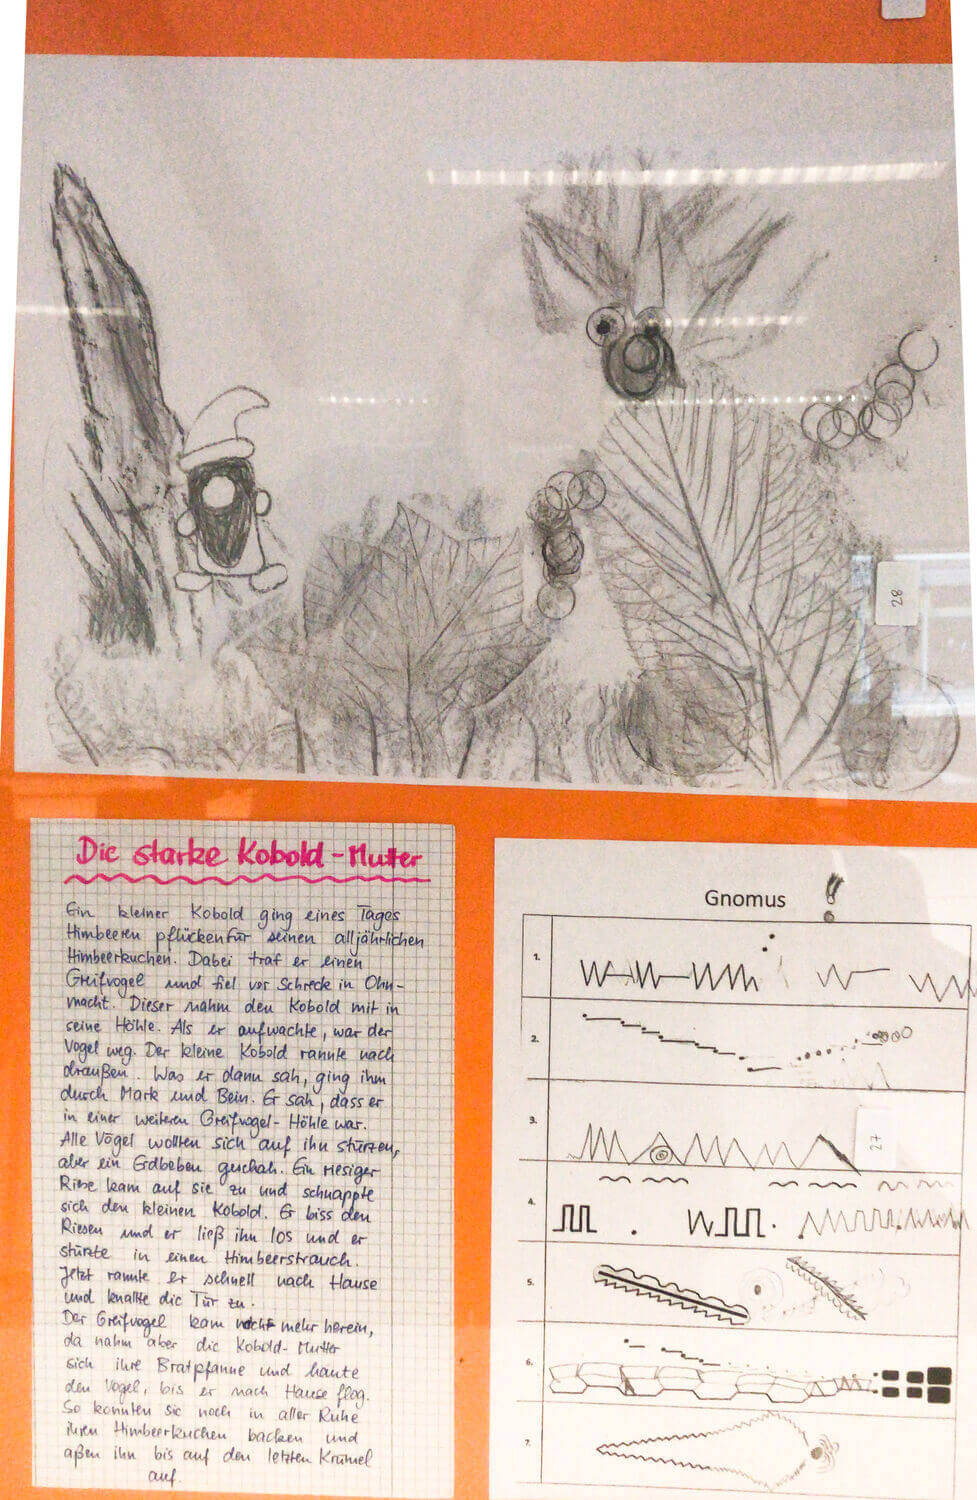 28
Die starke Kobold-Mutter
Ein kleiner Kobold ging eines Tages
Himbeeren pflücken für seinen alljährlichen
Himbeerkuchen. Dabei traf er einen
Greifvogel und fiel vor Schreck in Ohn-
macht. Dieser nahm den Kobold mit in
seine Höhle. Als er aufwachte, war der
Vogel weg. Der kleine Kobold rannte nach
draußen. Was er dann sah, ging ihm
durch Mark und Bein. Er sah, dass er
in einer weiteren Greifvogel-Höhle war.
Alle Vögel wollten sich auf ihn stürzen,
aber ein Erdbeben geschah. Ein riesiger
Riese kam auf sie zu und schnappte
sich den kleinen Kobold. Er biss den
Riesen und er ließ ihn los und er
stürzte in einen Himbeerstrauch.
Jetzt rannte er schnell nach Hause
und knallte die Tür zu.
Der Greifvogel kam nicht mehr herein,
da nahm aber die Kobold-Mutter
sich ihre Bratpfanne und haute
den Vogel, bis er nach Hause flog.
So konnten sie noch in aller Ruhe
ihren Himbeerkuchen backen und
aßen ihn bis auf den letzten Krümel
auf.
Gnomus !
1.
2.
3.
27
4.
5.
6.
7.